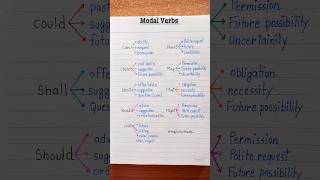 Modal Verbs
Can
ability
request
permission
Could
past ability
suggestion
future possibility
Shall
offer/advice
suggestion
Should
advice
suggestion
Will
future
willing
offer/request
Polite request
May
Permission
Future possibility
Uncertainity
obligation
necessity
Future possibility
Might
Permission
Polite request
Future possibility
could
past
sugge
futur
Shall
offe
sugg
Ques
Should
adv
sugg
ord
Permission
Future possibility
Uncertainity
obligation
necessity
Future possibility
Permission
Polite request
Future possibility